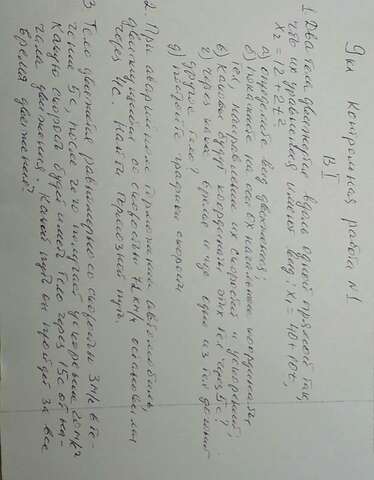 9кл контрольная работа №1
В I
1. Два тела движутся вдоль одной прямой так,
что их уравнения имеют вид: x₁ = 40+10t,
x₂ = 12+2t²
а) определите вид движения;
б) покажите на оси ох начальные координаты
тел, направление их скоростей и ускорений;
в) каковы будут координаты этих тел через 5с?
г) через какое время и где одно из тел догонит
другое тело?
д) постройте графики скорости
2. При аварийном торможении автомобиль,
движущийся со скоростью 72 км/ч остановился
через 4с. Найти тормозной путь.
3 Тело движется равномерно со скоростью 3м/с в те-
чение 5с, после чего получает ускорение
Какую скорость будет иметь тело через 15с от на-
чала движения. Какой путь он пройдет за все
время движения?